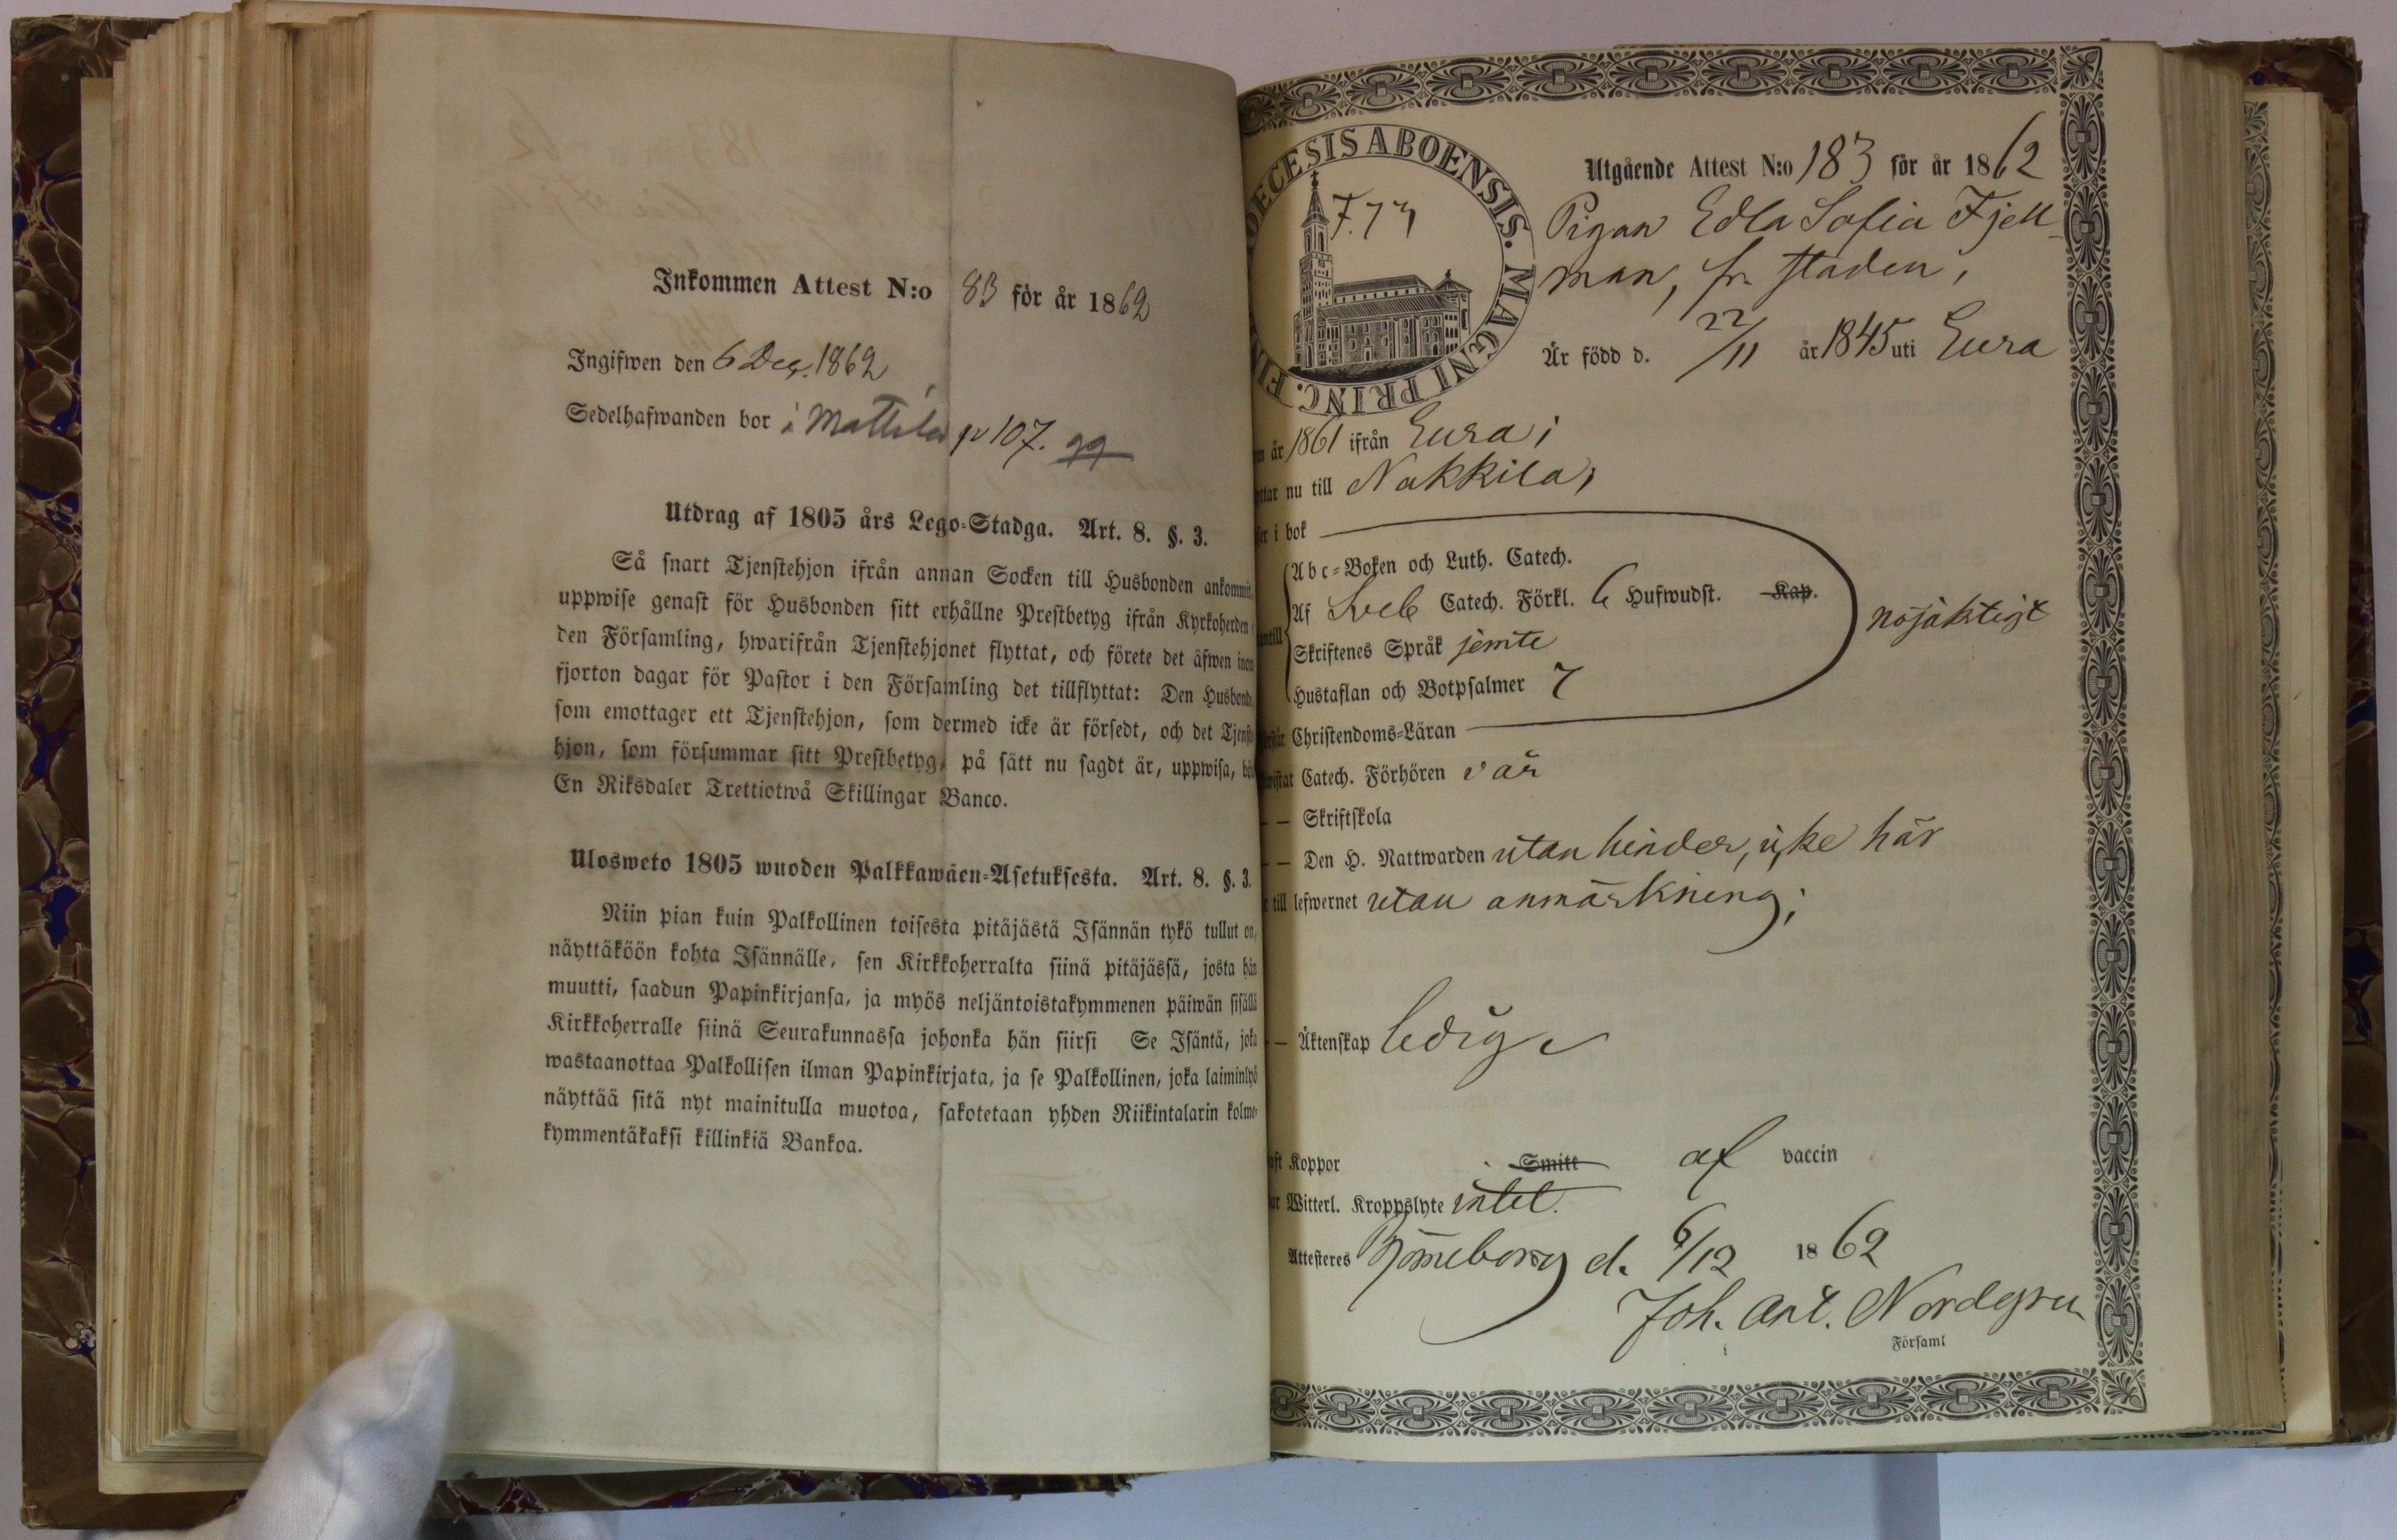 Inkommen Attest N:o 83 för år 1862
Ingifwen den 6 Dec. 1862
Sedelhafwanden bor i Mattila p 107. 99
Utdrag af 1805 års Lego-Stadga. Art. 8. §. 3.
Så snart Tjenstehjon ifrån annan Socken till Husbonden ankommit,
uppwise genast för Husbonden sitt erhållne Prestbetyg ifrån Kyrkoherden i
den Församling, hwarifrån Tjenstehjonet flyttat, och förete det äfwen inom
fjorton dagar för Pastor i den Församling det tillflyttat: Den Husbonde,
som emottager ett Tjenstehjon, som dermed icke är försedt, och det Tjenste
hjon, som försummar sitt Prestbetyg, på sätt nu sagdt är, uppwisa, bö
En Riksdaler Trettiotwå Skillingar Banco.
Ulosweto 1805 wuoden Palkkawäen-Asetuksesta. Art. 8. §. 3.
Niin pian kuin Palkollinen toisesta pitäjästä Isännän tykö tullut on,
näyttäköön kohta Isännälle, sen Kirkkoherralta siinä pitäjässä, josta hän
muutti, saadun Papinkirjansa, ja myös neljäntoistakymmenen päiwän sisällä
Kirkkoherralle siinä Seurakunnassa johonka hän siirsi Se Isäntä, joka
wastaanottaa Palkollisen ilman Papinkirjata, ja se Palkollinen, joka laiminlyö
näyttää sitä nyt mainitulla muotoa, sakotetaan yhden Riikintalarin kolme-
kymmentäkaksi killinkiä Bankoa.
OECESIS ABOENSIS. MAGNI PRINC. FIN
F. 73
Utgående Attest N:o 183 för år 1862
Pigan Edla Sofia Fjell-
man, fr. staden,
Är född d. 22/11 år 1845 uti Eura
år 1861 ifrån Eura;
ttar nu till Nakkila,
er i bok
Abc-Boken och Luth. Catech.
Af Sveb Catech. Förkl. 6 Hufwudst. Kap.
ntill Skriftenes Språk jemte
Hustaflan och Botpsalmer 7
nöjaktigt
Christendoms-Läran
Catech. Förhören i år
— Skriftskola
— Den H. Nattwarden utan hinder, icke här
till lefwernet utan anmärkning;
— Äktenskap ledig
Koppor Smitt af vaccin
Witterl. Kroppslyte intet.
Attesteres Björneborg d. 6/12 1862
Joh. Ant. Nordgren
Församl